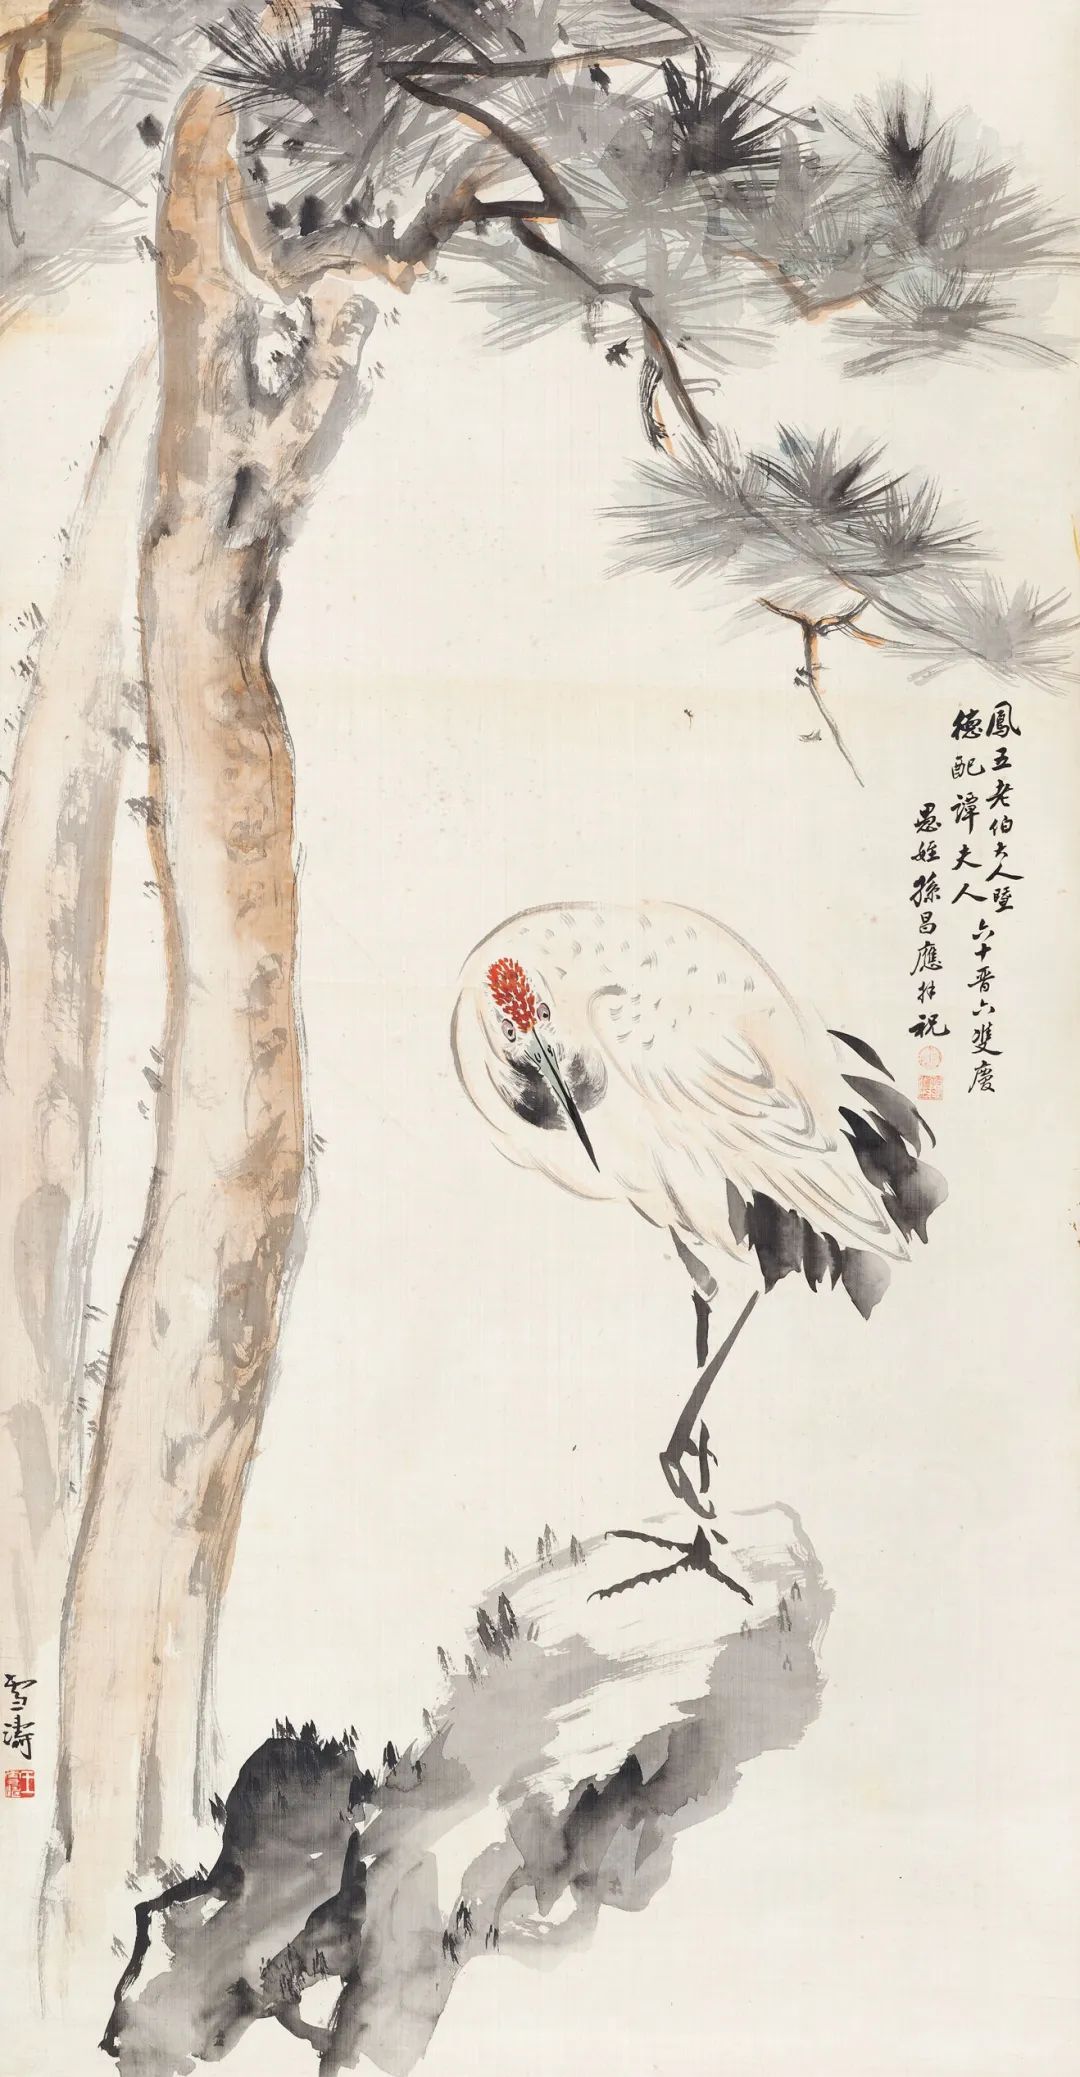 鳳五老伯大人暨
德配譚夫人六十晋六雙慶
愚姪孫昌應拜祝
雪濤